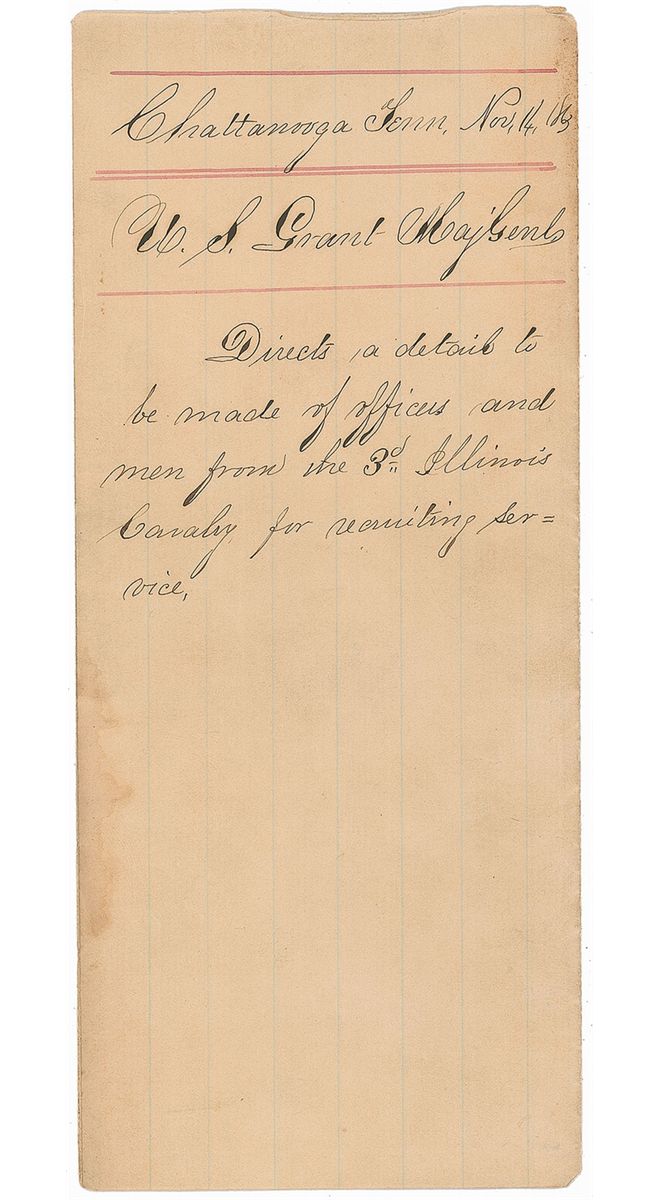 Chattanooga Tenn, Nov, 14, 1863
U. S. Grant Maj Genl
Directs a detail to
be made of officers and
men from the 3d Illinois
Cavalry for recruiting ser=
vice,